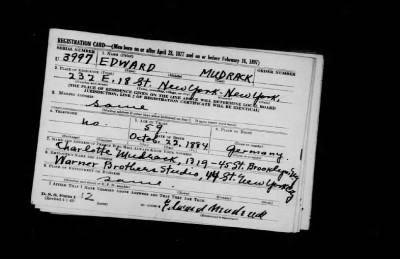 REGISTRATION CARD—(Men born on or after April 28, 1877 and on or before February 16, 1897)
SERIAL NUMBER 1. NAME (Print) ORDER NUMBER
U 3997 EDWARD MUDRACK
2. PLACE OF RESIDENCE (Print)
232 E. 18 St. New York. New York.
(THE PLACE OF RESIDENCE GIVEN ON THE LINE ABOVE WILL DETERMINE LOCAL BOARD
JURISDICTION; LINE 2 OF REGISTRATION CERTIFICATE WILL BE IDENTICAL)
3. MAILING ADDRESS
same
4. TELEPHONE 5. AGE IN YEARS 6. PLACE OF BIRTH
no. 57
DATE OF BIRTH
Octob. 22, 1884 Germany.
7. NAME AND ADDRESS OF PERSON WHO WILL ALWAYS KNOW YOUR ADDRESS
Charlotte Mudrack, 1319-45 St. Brooklyn Ny
8. EMPLOYER'S NAME AND ADDRESS
Warner Brothers Studio, 44 St. New York Ny
9. PLACE OF EMPLOYMENT OR BUSINESS
same
I AFFIRM THAT I HAVE VERIFIED ABOVE ANSWERS AND THAT THEY ARE TRUE.
D. S. S. Form 1
Edward Mudrack